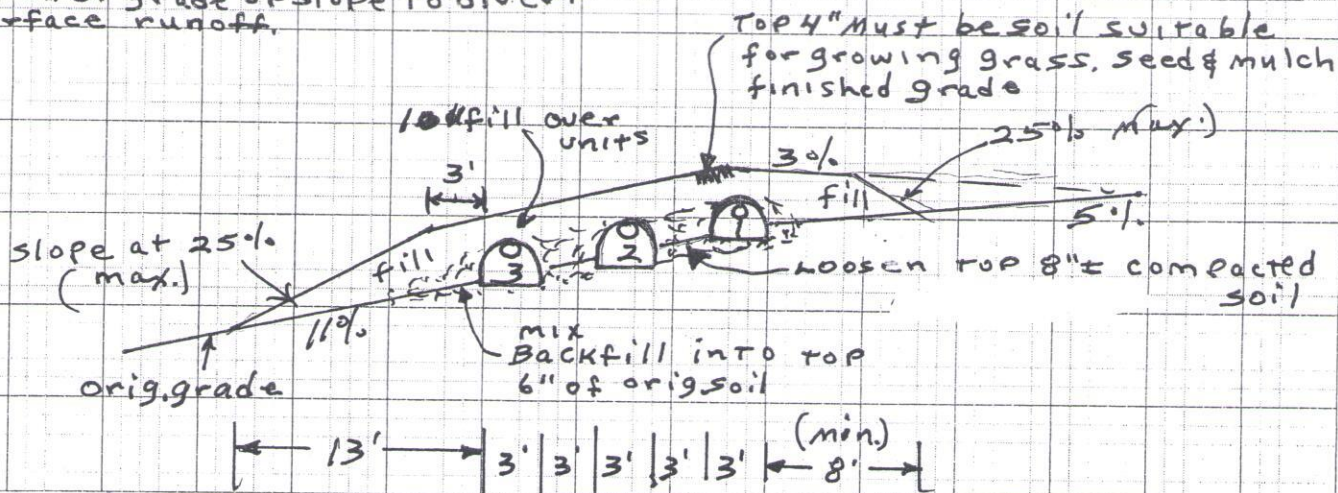 grade or slope to divert
rface runoff.
Top 4" Must be soil suitable
for growing grass. seed & mulch
finished grade
10" fill over
units
25% (max.)
3%
3'
fill
5%
1
2
3
slope at 25%
(max.)
fill
11%
Loosen top 8"± compacted
soil
mix
Backfill into top
6" of orig soil
orig. grade
13'
3' 3' 3' 3' 3'
(min.)
8'